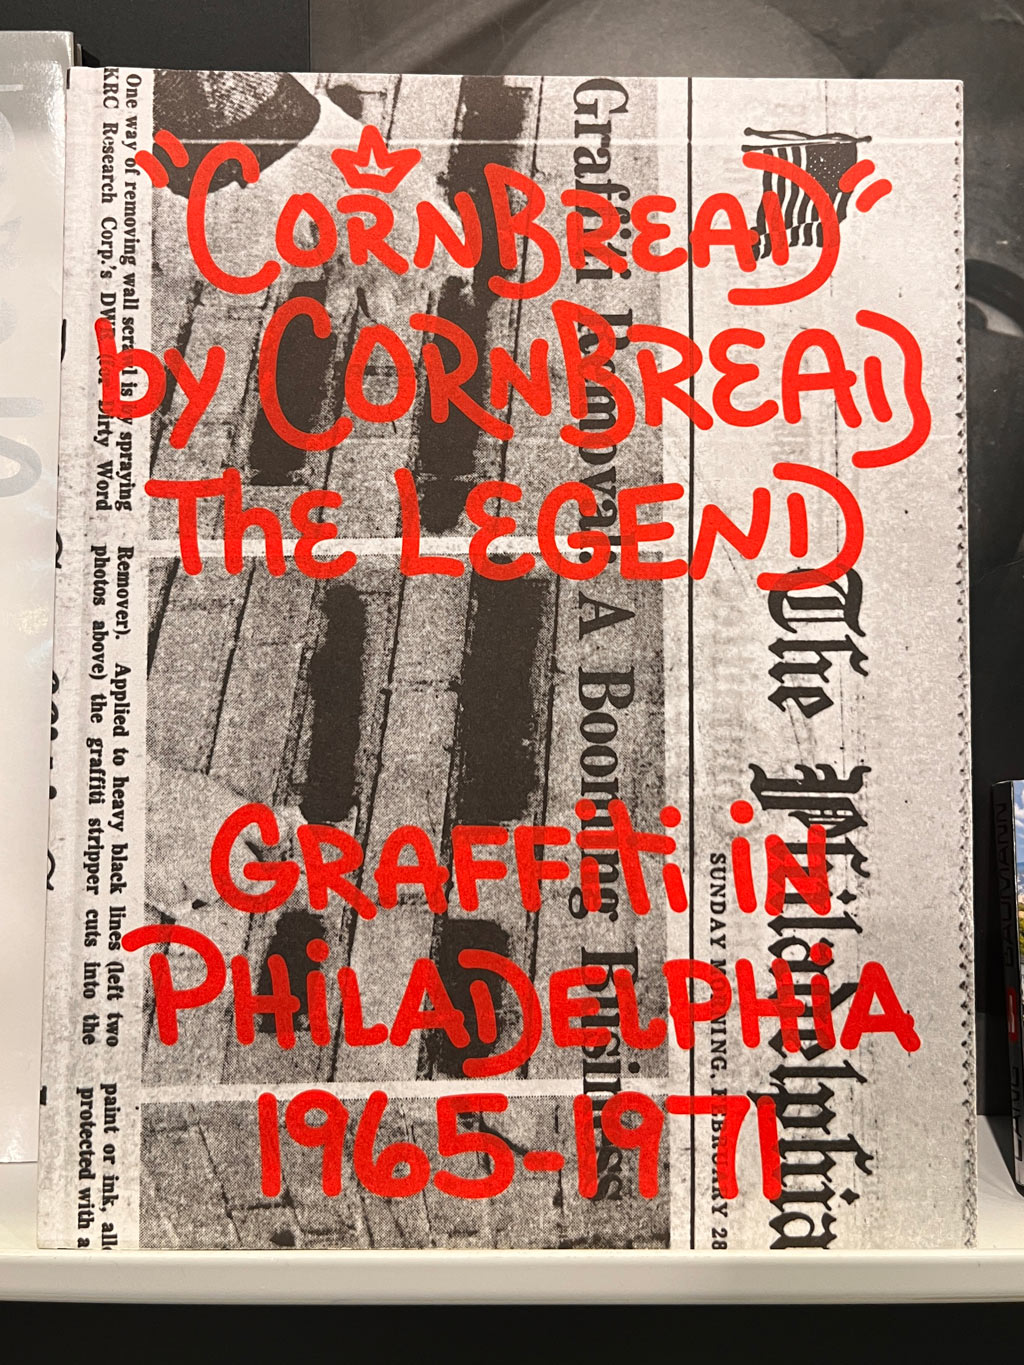 "CORNBREAD"
by CORNBREAD
The LEGEND
GRAFFiTi iN
PHiLADELPHiA
1965-1971
The Philadelphia
SUNDAY MORNING, FEBRUARY 28
Graffiti Removal: A Booming Business
One way of removing wall scrawl is by spraying Remover). Applied to heavy black lines (left two paint or ink,
KRC Research Corp.'s DWR (for Dirty Word photos above) the graffiti stripper cuts into the protected with a
BAUMANN